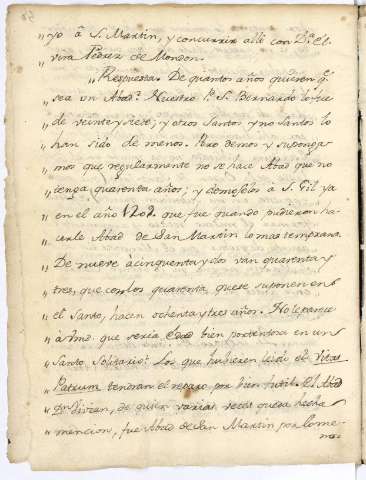 „ yo â S. Martin, y concurrir alli con D.ª El-
vira Perez de Monzon.
„ Respuesta. De quantos años quieren q.
„ sea un Abad? Nuestro P. S. Bernardo lo fue
„ de veinte y siete; y otros Santos y no Santos lo
„ han sido de menos. Pero demos y suponga-
„ mos que regularmente no se hace Abad que no
„ tenga quarenta años; y demoselos à S. Gil ya
„ en el año 1209. que fue quando pudieron ha-
„ cerle Abad de San Martin lo mas temprano.
„ De nueve à cinquenta y dos van quarenta y
„ tres, que con los quarenta, que se suponen en
„ el Santo, hacen ochenta y tres años. No le parece
„ a Vmd. que seria edad bien portentosa en un
„ Santo Solitario? Los que hubieren leido el Vitas
„ Patrum tendran el reparo por bien futil. El Abad
„ Dn Vivian, de quien varias veces queda hecha
„ mencion, fue Abad de San Martin por lo me-
nos